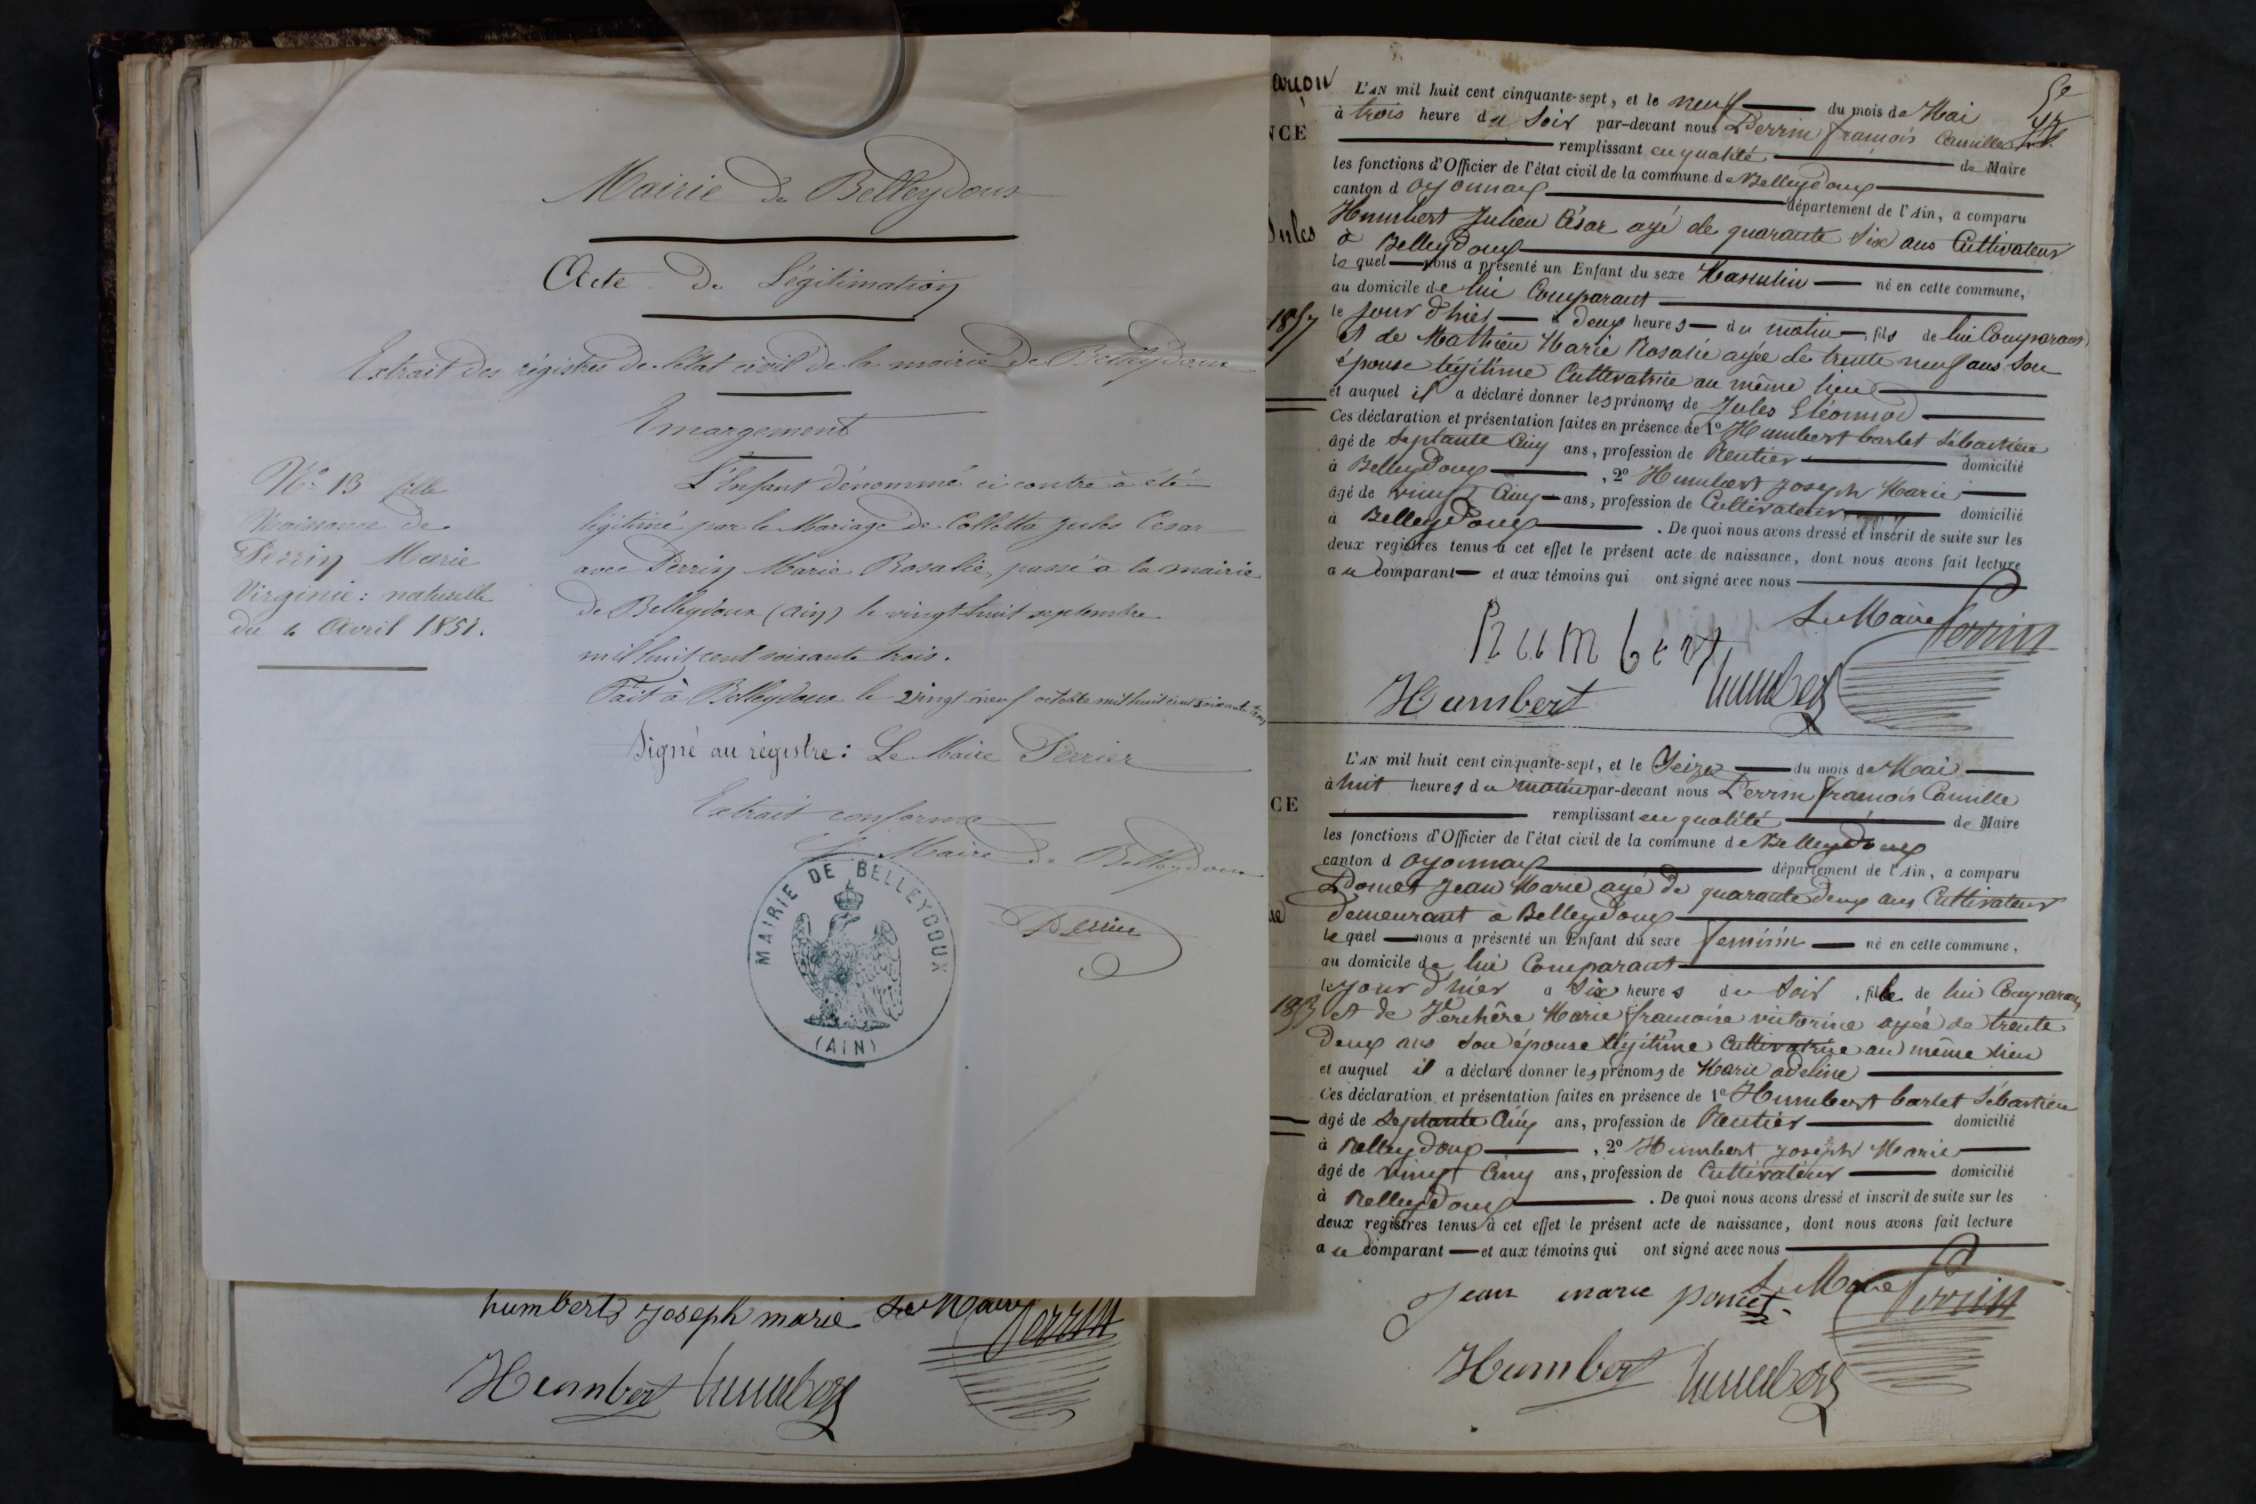 Mairie de Belleydoux
Acte de Légitimation
Extrait des régistres de l'état civil de la mairie de Belleydoux
Emargement
N° 13 fille
Naissance de
Perrin Marie
Virginie: naturelle
du 4 Avril 1857.
L'Enfant dénommé ci contre à été
légitimé par le Mariage de Colletta Jules Cesar
avec Perrin Marie Rosalie, passé à la mairie
de Belleydoux (Ain) le vingt-huit septembre
mil huit cent soixante trois.
Fait à Belleydoux le vingt neuf octobre mil huit cent soixante trois
Signé au régistre: Le Maire Perrier
Extrait conforme
Le Maire de Belleydoux
MAIRIE DE BELLEYDOUX
(AIN)
humbert joseph marie Le Maire Perrin
Humbert humbert
arçon
NCE
Jules
1857
L'AN mil huit cent cinquante-sept, et le neuf du mois de Mai
à trois heure du Soir par-devant nous Perrin françois Camille
remplissant en qualité de Maire
les fonctions d'Officier de l'état civil de la commune de Belleydoux
canton d Oyonnax département de l'Ain, a comparu
Humbert Julien César agé de quarante Six ans Cultivateur
à Belleydoux
le quel nous a présenté un Enfant du sexe Masculin né en cette commune,
au domicile de lui Comparant
le jour d'hier à deux heures du matin fils de lui Comparant
et de Mathieu Marie Rosalie agée de trente neuf ans Son
épouse légitime Cultivatrice au même lieu
et auquel il a déclaré donner les prénoms de Jules Eléonnod
Ces déclaration et présentation faites en présence de 1° Humbert barlet Sébastien
âgé de Septante Cinq ans, profession de Rentier domicilié
à Belleydoux, 2° Humbert joseph Marie
âgé de vingt Cinq ans, profession de Cultivateur domicilié
à Belleydoux. De quoi nous avons dressé et inscrit de suite sur les
deux registres tenus à cet effet le présent acte de naissance, dont nous avons fait lecture
au comparant et aux témoins qui ont signé avec nous
Le Maire Perrin
humbert
Humbert humbert
CE
1857
L'AN mil huit cent cinquante-sept, et le Seize du mois de Mai
à huit heures du matin par-devant nous Perrin françois Camille
remplissant en qualité de Maire
les fonctions d'Officier de l'état civil de la commune de Belleydoux
canton d Oyonnax département de l'Ain, a comparu
Poncet Jean Marie agé de quarante deux ans Cultivateur
demeurant à Belleydoux
le quel nous a présenté un Enfant du sexe feminin né en cette commune,
au domicile de lui Comparant
le jour d'hier à Six heures du Soir, fille de lui Comparant
et de Verchère Marie françoise victorine agée de trente
deux ans Son épouse légitime Cultivatrice au même lieu
et auquel il a déclaré donner les prénoms de Marie adeline
Ces déclaration et présentation faites en présence de 1° Humbert barlet Sébastien
âgé de Septante Cinq ans, profession de Rentier domicilié
à Belleydoux, 2° Humbert joseph Marie
âgé de vingt Cinq ans, profession de Cultivateur domicilié
à Belleydoux. De quoi nous avons dressé et inscrit de suite sur les
deux registres tenus à cet effet le présent acte de naissance, dont nous avons fait lecture
au comparant et aux témoins qui ont signé avec nous
Jean marie poncet Le Maire Perrin
Humbert humbert